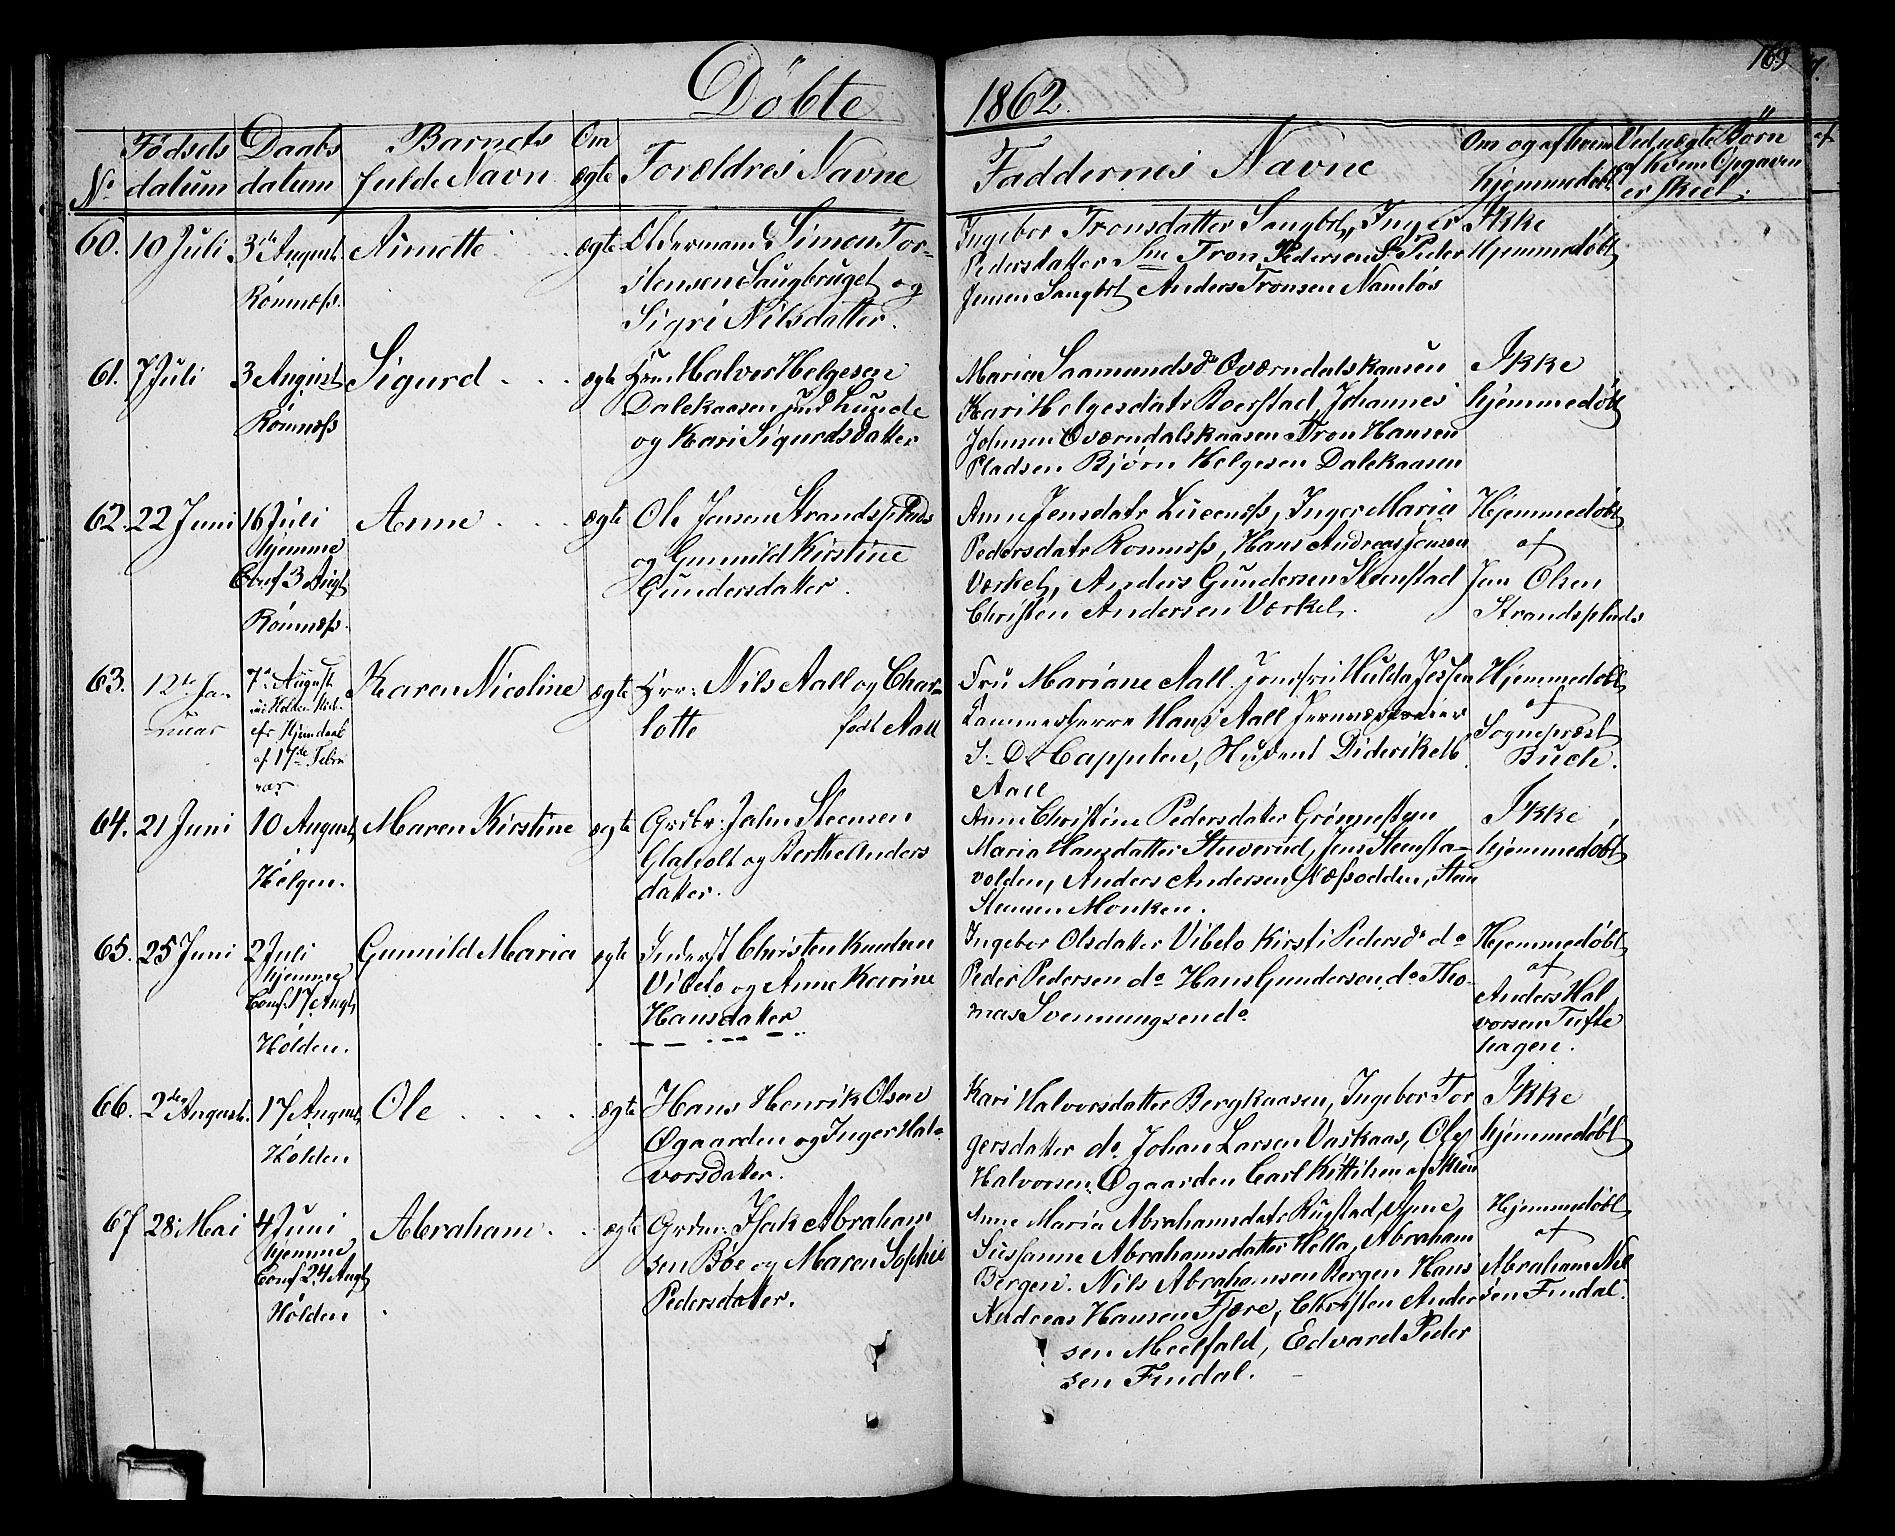 Döbte 1862.
169
No
Födsels datum
Daabs datum
Barnets fulde Navn
Om ægte
Forældres Navne
Faddernes Navne
Om og af hvem hjemmedøbt
Ved uægte Børn af hvem Opgaven er skeet.
60. 10 Juli
3de August Romnæss.
Annette
ægte
Oldermand Simon Tor-
stensen Saugbruget og
Sigri Nilsdatter.
Ingebor Tronsdatter Saugbt, Inger
Pedersdatter Tron Pedersen Peder
Jensen Saugbt Anders Tronsen Namløs
Ikke
Hjemmedøbt
61. 7 Juli
3 August
Romnæss
Sigurd
ægte
Halvor Helgesen
Dalekaasen und Lunde
og Kari Sigurdsdatter
Maria Saamundsdr Oværndalskaasen
Kari Helgesdatr Roerstad Johannes
Johnsen Oværndalskaasen Tron Hansen
Pladsen Bjørn Helgesen Dalekaasen
Ikke
hjemmedøbt
62. 22 Juni
16 Juli
hjemme
Conf 3 Augt
Romnæss.
Anne
ægte
Ole Jensen Strandsplads
og Gunnild Kirstine
Gundersdatter.
Anne Jensdatr Inger Maria
Pedersdatr Romnæss, Hans Andreas Jensen
Værket, Anders Gundersen Steenstad
Christen Andersen Værket.
Hjemmedøbt
af
Jan Olsen
Strandsplads
63. 12te Ja-
nuar
7de August
i Holden Kirk.
efr Hjemdaab
af 17de Febru
ar
Karen Nicoline
ægte
Hrr: Nils Aall og Char-
lotte født Aall
Fru Mariane Aall. Jomfru Hulda Jessen
Kammerherre Hans Aall Jernværkseier
D. Cappelen, Student Diderik
Aall
Hjemmedøbt
af
Sognepræst
Buch.
64. 21 Juni
10 August
Helgen.
Maren Kirstine
ægte
Grdbr: John Steensen
Glaholt og Berthe Anders
datter.
Anne Christine Pedersdatter Grønnesteen
Maria Hansdatter Stuverud, Jens Steensta-
volden, Anders Andersen Næsodden, Sten
Stensen Monken.
Ikke
hjemmedøbt
65. 25 Juni
2 Juli
hjemme
Conf. 17 Augt
Holden.
Gunnild Maria
ægte
Inderst Christen Knudsen
Vibeto og Anne Karine
Hansdatter
Ingebor Olsdatter Vibeto Kirsti Pedersdr do
Peder Pedersen do Hans Gundersen do Tho-
mas Svennungsen do
Hjemmedøbt
af
Anders Hal
vorsen Tufte
hagen.
66. 2den August.
17 August
Holden
Ole
ægte
Hans Henrik Olsen
Øgaarden og Inger Hal-
vorsdatter.
Kari Halvorsdatter Bergkaasen, Ingebor Tor
gersdatter do Johan Larsen Vaskaas, Ole
Halvorsen Øgaarden Carl Kittilsen af Skien
Ikke
hjemmedøbt
67 28 Mai
4 Juni
hjemme
Conf 24 Augt
Holden
Abraham
ægte
Grdm: Isak Abraham
sen Bøe og Maren Sophie
Pedersdatter.
Anne Maria Abrahamsdatr Rugstad, Anne
Susanne Abrahamsdatter Hella, Abraham
Bergen. Nils Abrahamsen Bergen Hans
Andreas Hansen Fjære, Christen Ander
sen Meelfald, Edvard Peder
sen Findal.
Hjemmedøbt
af
Abraham Nil
sen Findal.